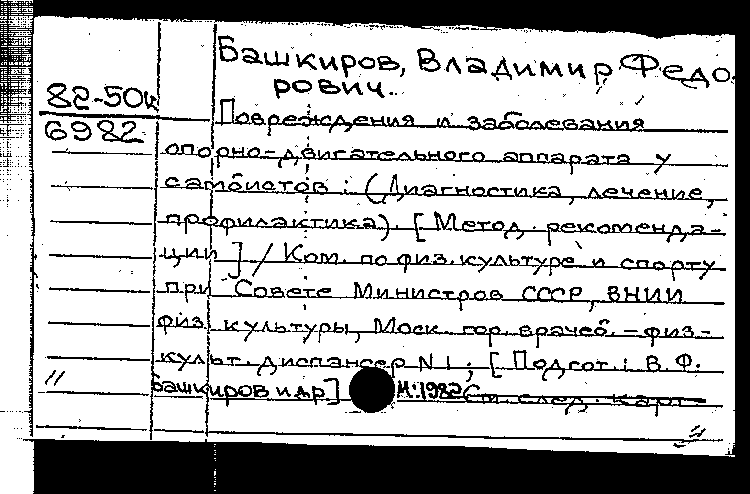 Башкиров, Владимир Федо-
рович.
82-50к
6982
Повреждения и заболевания
опорно-двигательного аппарата у
самбистов: (Диагностика, лечение,
профилактика). [Метод. рекоменда-
ции] / Ком. по физ. культуре и спорту
при Совете Министров СССР, ВНИИ
физ. культуры, Моск. гор. врачеб.-физ-
культ. диспансер N 1; [Подгот.: В. Ф.
Башкиров и др] М.: 1982 См. след. карт